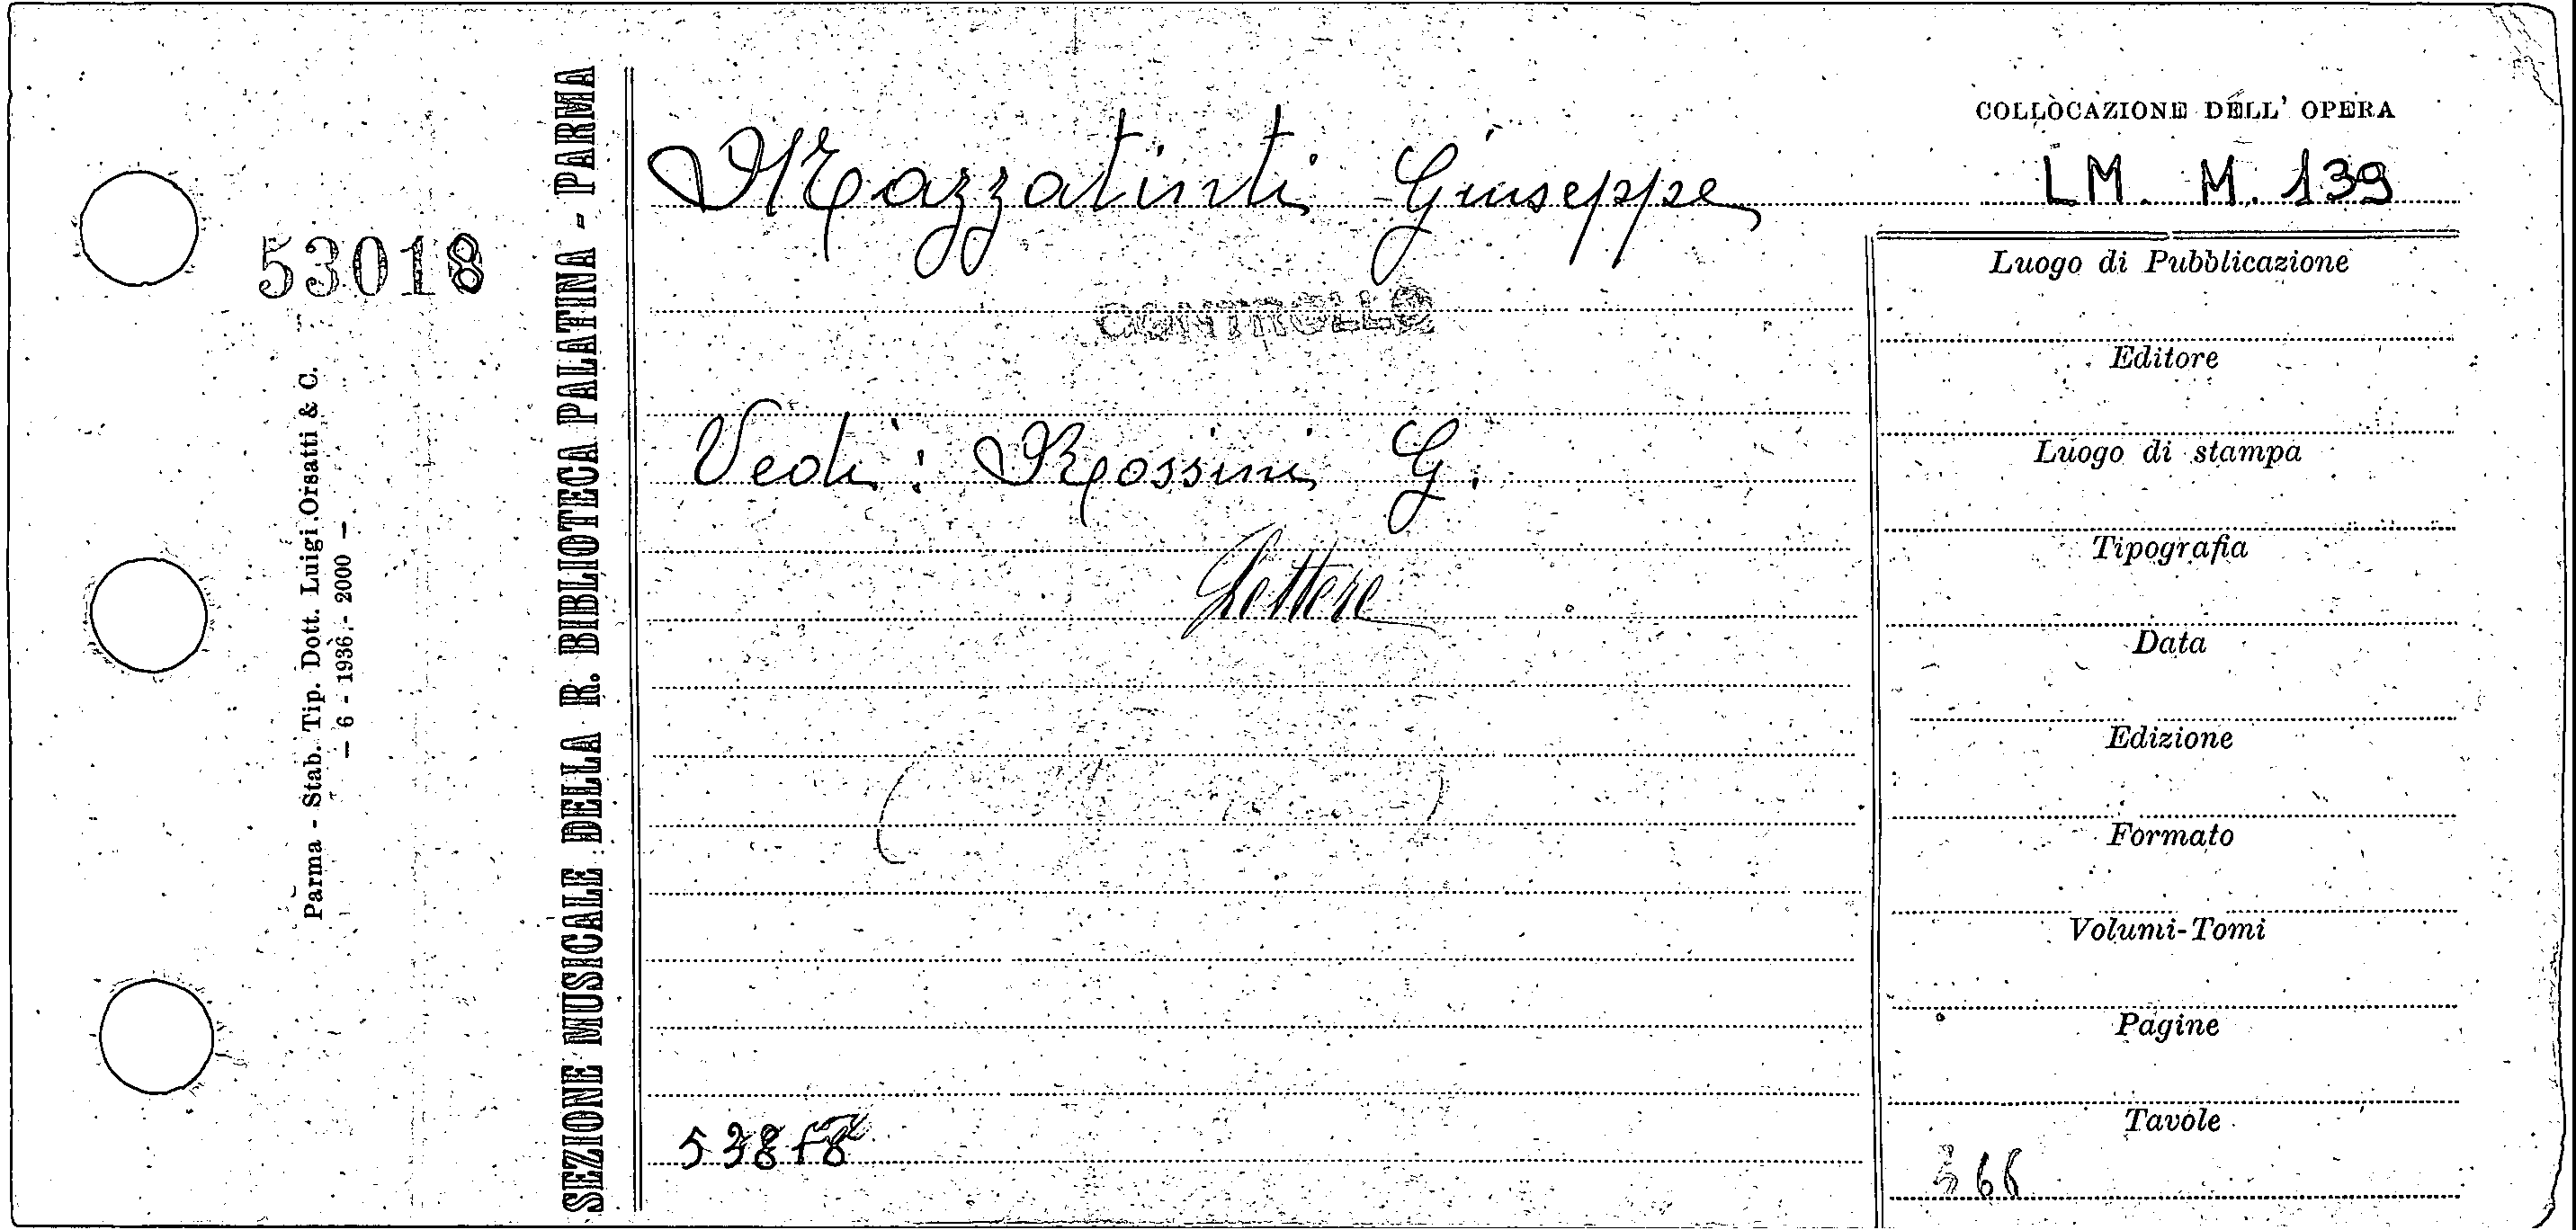 53018
Parma - Stab. Tip. Dott. Luigi Orsatti & C.
- 6 - 1936 - 2000 -
SEZIONE MUSICALE DELLA R. BIBLIOTECA PALATINA - PARMA
Mazzatinti Giuseppe
CONTROLLO
Vedi: Rossini G.
Lettere
COLLOCAZIONE DELL' OPERA
LM. M. 139
Luogo di Pubblicazione
Editore
Luogo di stampa
Tipografia
Data
Edizione
Formato
Volumi-Tomi
Pagine
Tavole